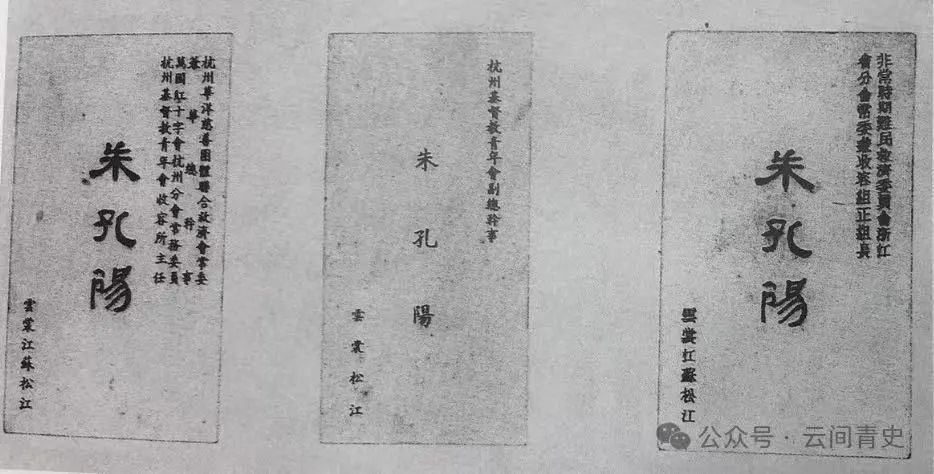 杭州華洋慈善團體聯合救濟會常委
兼華總幹事
萬國紅十字會杭州分會常務委員
杭州基督教青年會收容所主任
朱孔陽
雲裳江蘇松江
杭州基督教青年會副總幹事
朱孔陽
雲裳松江
非常時期難民救濟委員會浙江
省分會常委兼收容組正組長
朱孔陽
雲裳江蘇松江
公众号·云间青史